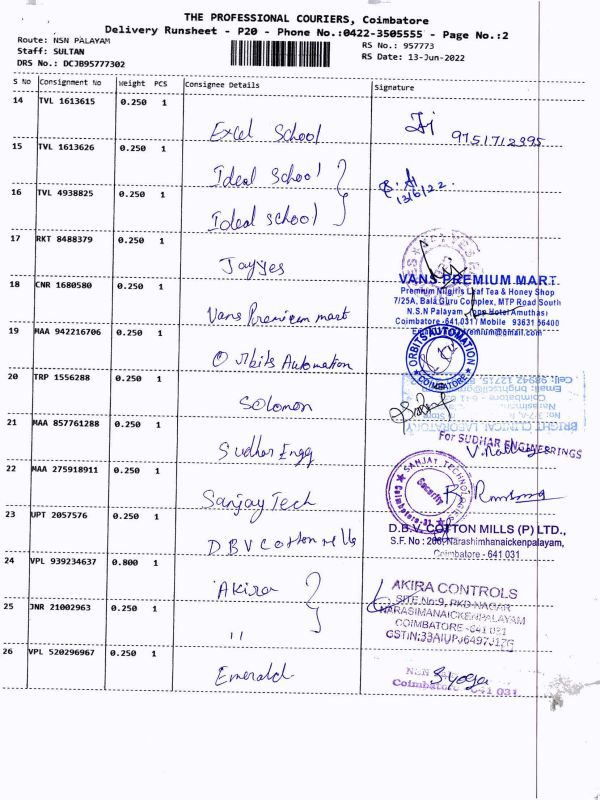 THE PROFESSIONAL COURIERS, Coimbatore
Delivery Runsheet - P20 - Phone No.:0422-3505555 - Page No.:2
Route: NSN PALAYAM
Staff: SULTAN
DRS No.: DCJB95777302
RS No.: 957773
RS Date: 13-Jun-2022
S No Consignment No Weight PCS Consignee Details Signature
14 TVL 1613615 0.250 1
Excel School 9751712395
15 TVL 1613626 0.250 1
Ideal School
13/6/22
16 TVL 4938825 0.250 1
Ideal School
17 RKT 8488379 0.250 1
Jayyes
18 CNR 1680580 0.250 1
Vans Premium mart
VANS PREMIUM MART
Premium Nilgiris Leaf Tea & Honey Shop
7/25A, Bala Guru Complex, MTP Road South
N.S.N Palayam, Opp Hotel Amuthasi
Coimbatore-641,031/ Mobile 93631 56400
19 MAA 942216706 0.250 1
Orbits Automation
ORBITS AUTOMATION
COIMBATORE
20 TRP 1556288 0.250 1
Solomon
BRIGHT CLINICAL LABORATORY
21 MAA 857761288 0.250 1
Sudhar Engg
For SUDHAR ENGINEERINGS
22 MAA 275918911 0.250 1
Sanjay Tech
SANJAY TECHNOLOGIES
Security
23 UPT 2057576 0.250 1
D B V Cotton mills
D.B.V. COTTON MILLS (P) LTD.,
Narashimhanaickenpalayam,
Coimbatore - 641 031
24 VPL 939234637 0.800 1
Akira
AKIRA CONTROLS
SITE No:9, RKD NAGAR
NARASIMANAICKENPALAYAM
COIMBATORE -641 031
25 JNR 21002963 0.250 1
"
26 VPL 520296967 0.250 1
Emerald
NSN
Coimbatore 641 031